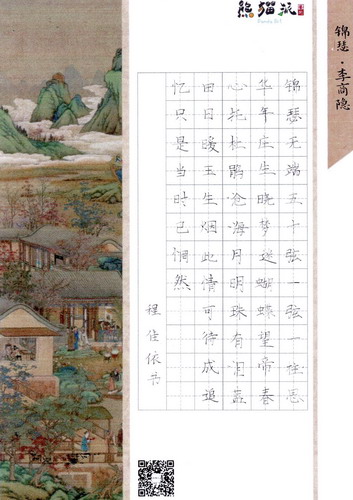 锦瑟·李商隐
锦瑟无端五十弦一弦一柱思
华年庄生晓梦迷蝴蝶望帝春
心托杜鹃沧海月明珠有泪蓝
田日暖玉生烟此情可待成追
忆只是当时已惘然
程佳依书